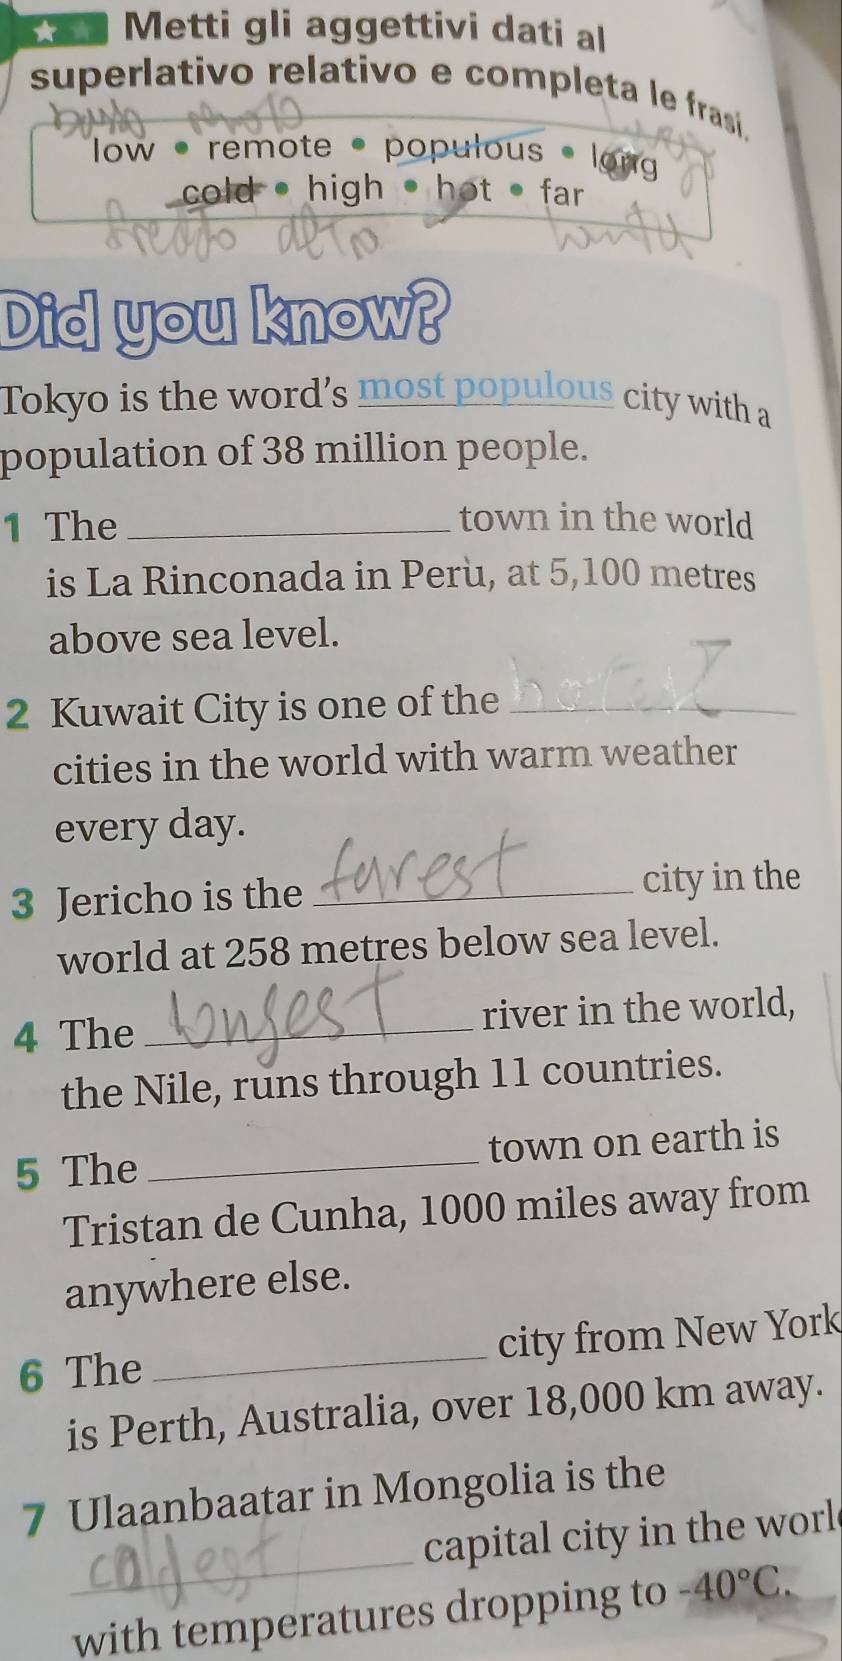 Metti gli aggettivi dati al
superlativo relativo e completa le frasi.
basso remoto
low • remote • populous • long
cold • high • hot • far
freddo alto
Did you know?
Tokyo is the word's most populous city with a
population of 38 million people.
1 The ____ town in the world
is La Rinconada in Perù, at 5,100 metres
above sea level.
2 Kuwait City is one of the ____
cities in the world with warm weather
every day.
3 Jericho is the farest city in the
world at 258 metres below sea level.
4 The longest river in the world,
the Nile, runs through 11 countries.
5 The ____ town on earth is
Tristan de Cunha, 1000 miles away from
anywhere else.
6 The ____ city from New York
is Perth, Australia, over 18,000 km away.
7 Ulaanbaatar in Mongolia is the
coldest capital city in the worl
with temperatures dropping to -40°C.